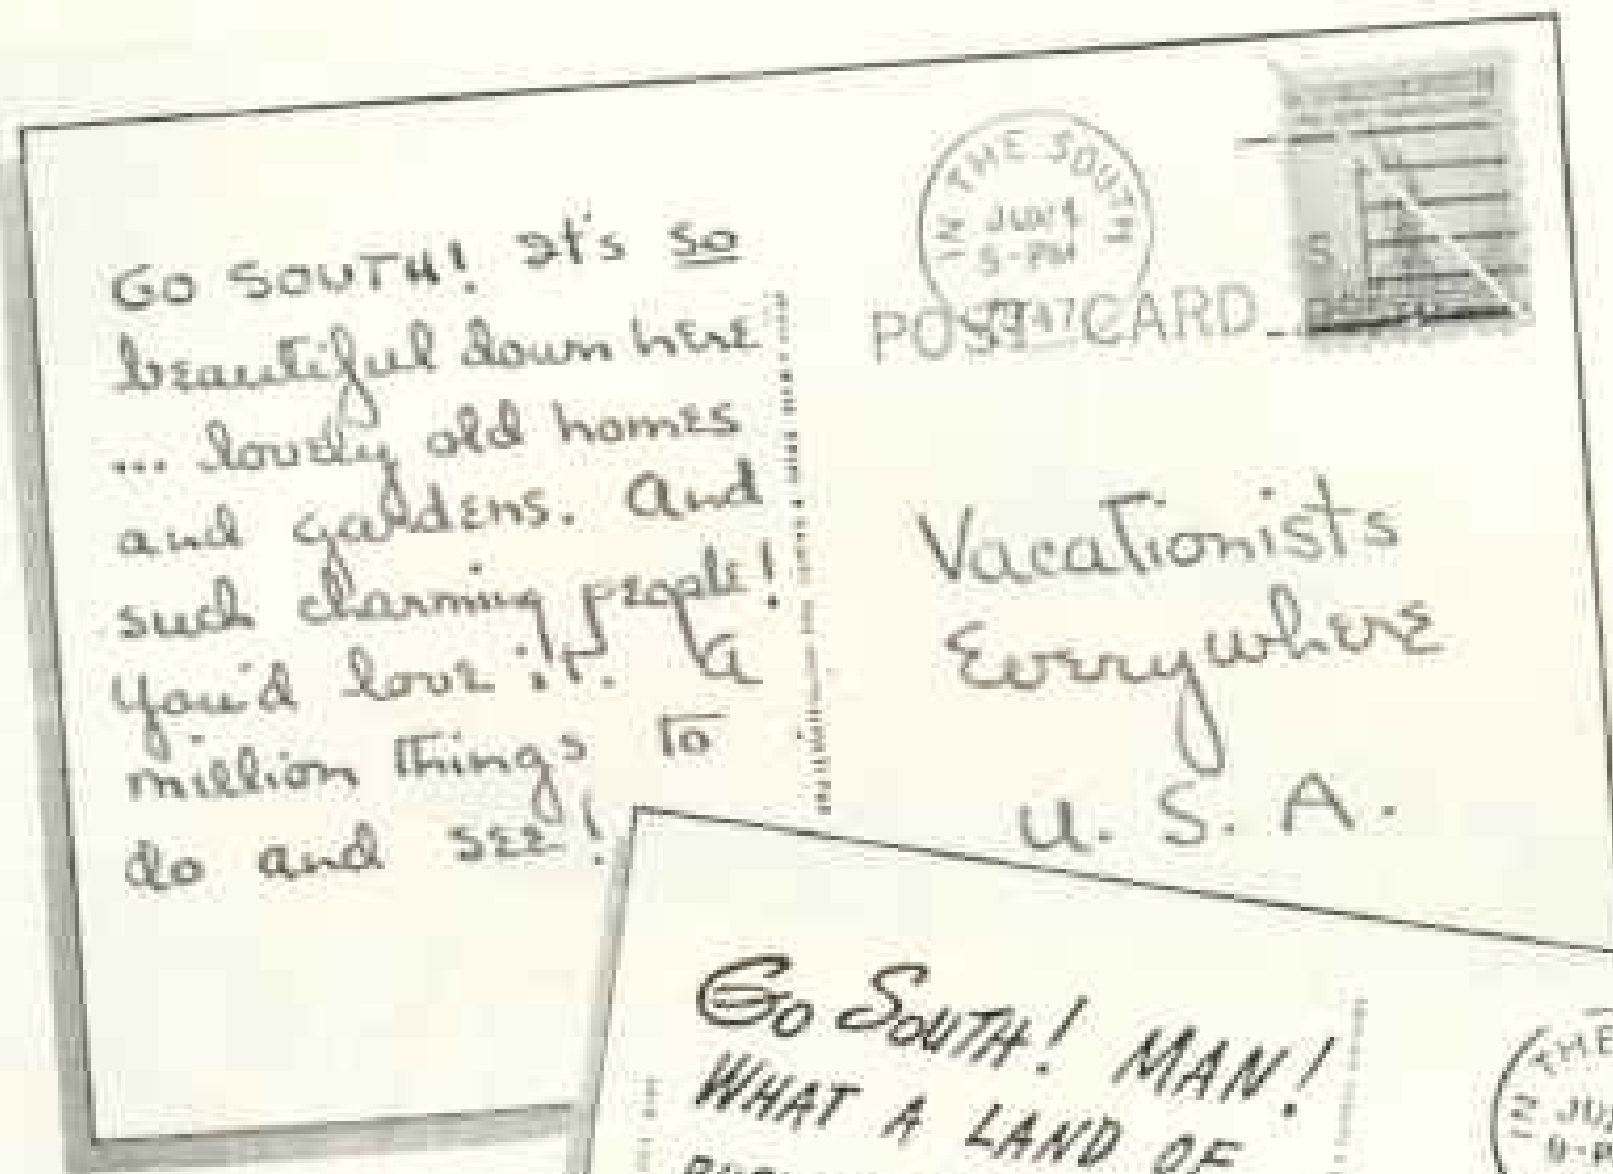 GO SOUTH! It's so
beautiful down here
... lovely old homes
and gardens. And
such charming people!
You'd love it. A
million things to
do and see!
IN THE SOUTH
5-PM
POST CARD
Vacationists
Everywhere
U. S. A.
GO SOUTH! MAN!
WHAT A LAND OF
IN THE